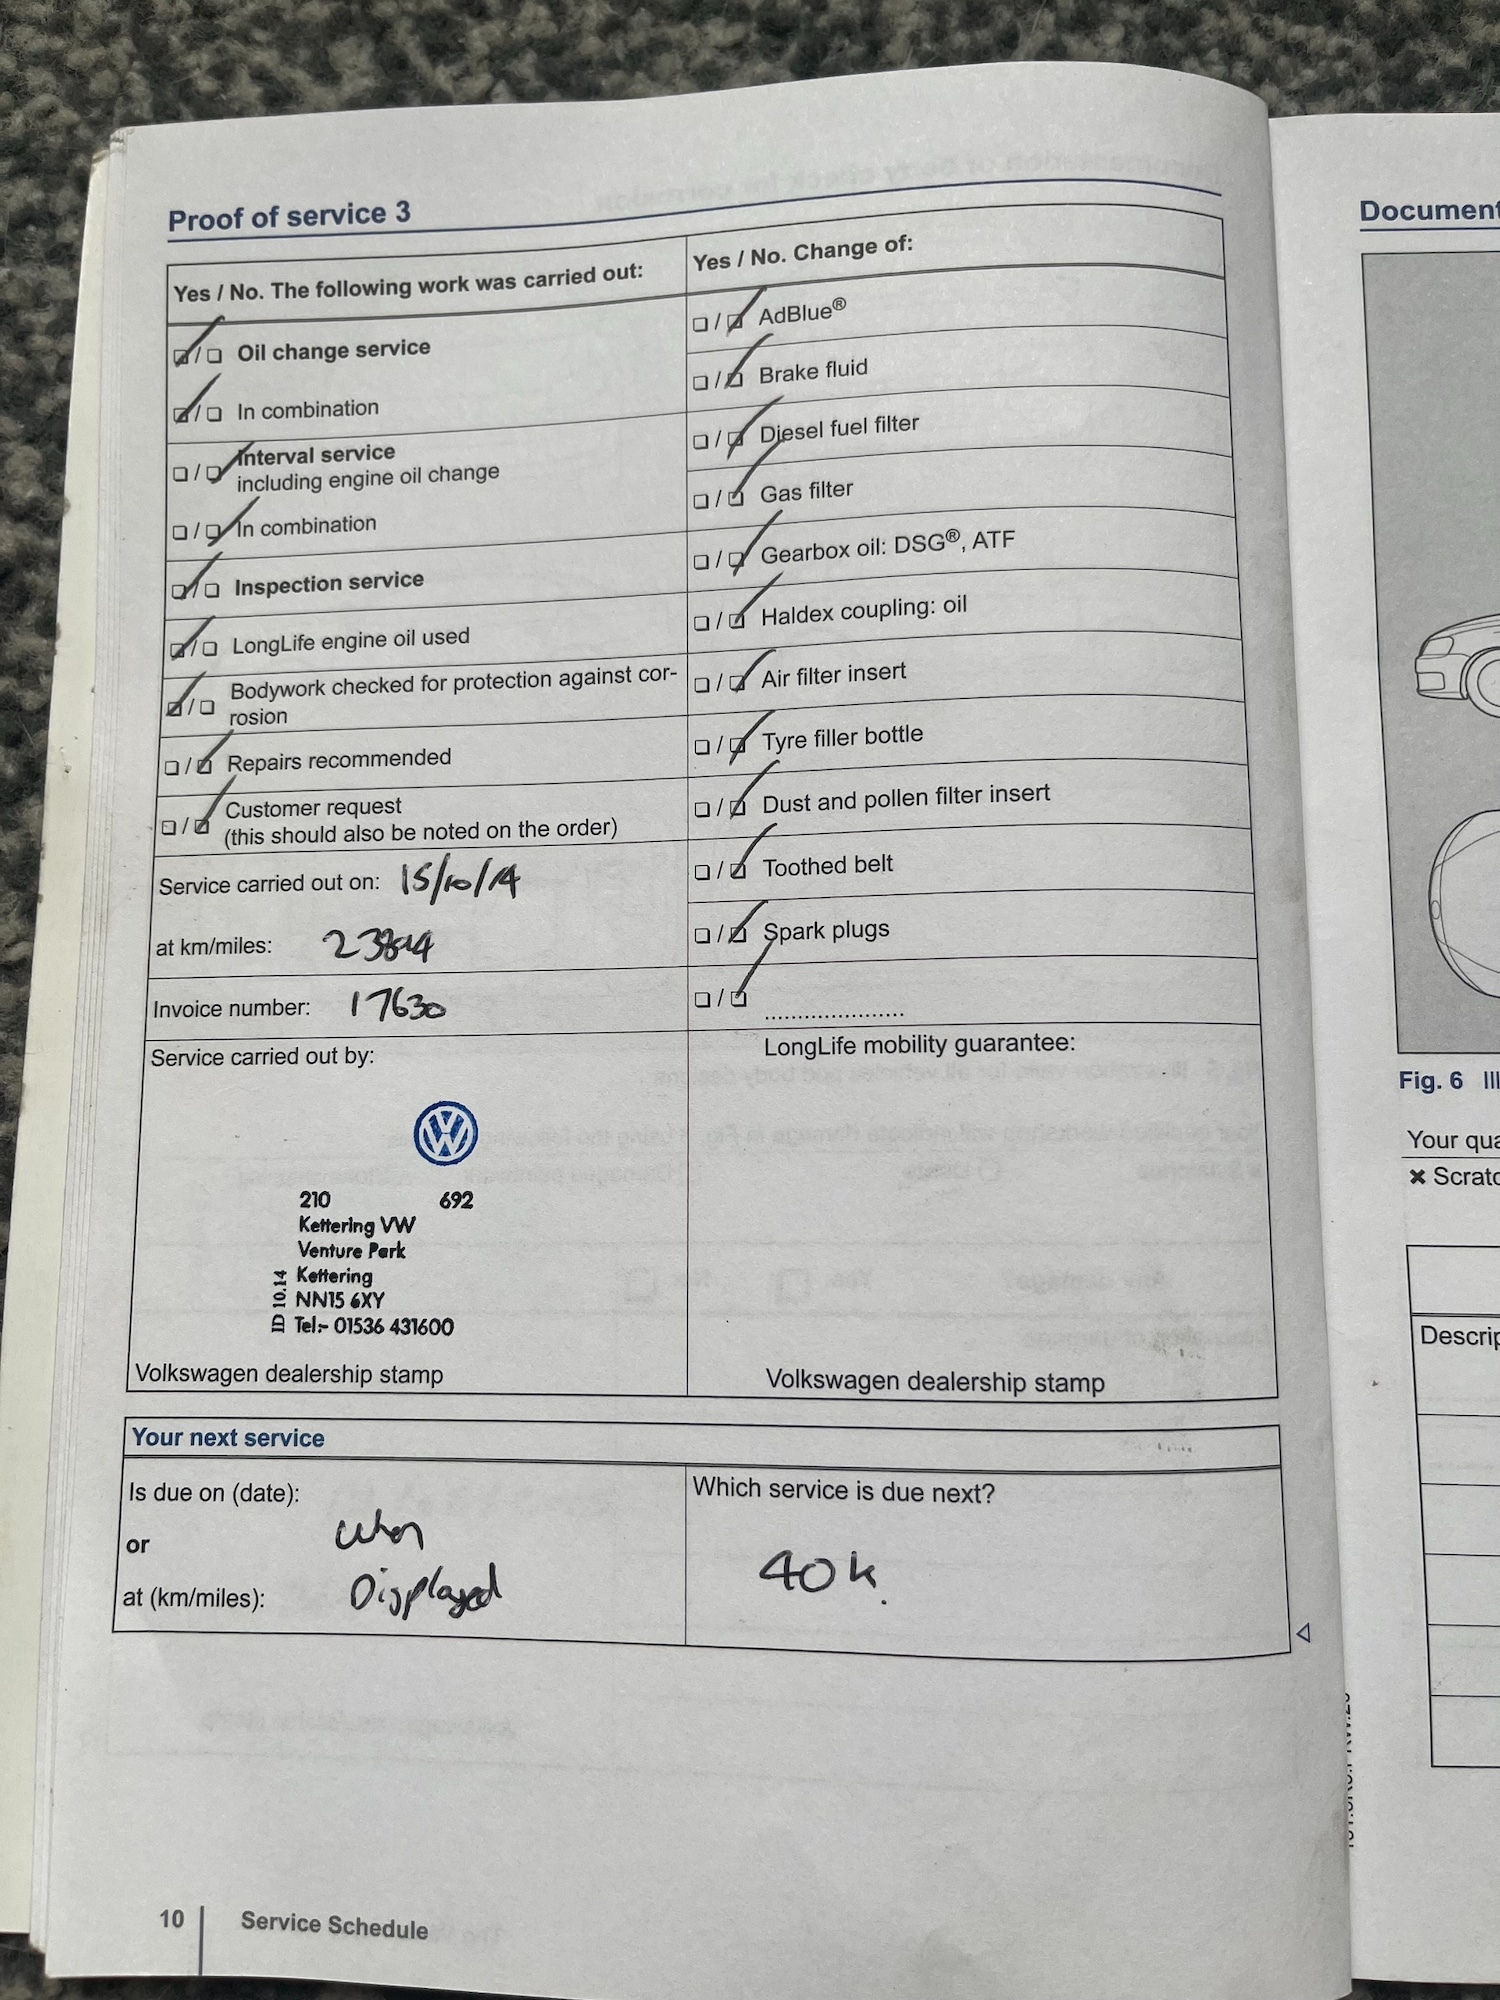 Proof of service 3
Yes / No. The following work was carried out:
Oil change service
In combination
Interval service
including engine oil change
In combination
Inspection service
LongLife engine oil used
Bodywork checked for protection against cor-
rosion
Repairs recommended
Customer request
(this should also be noted on the order)
Service carried out on: 15/10/14
at km/miles:
Invoice number: 17630
Service carried out by:
210 692
Kettering VW
Venture Park
Kettering
NN15 6XY
Tel:- 01536 431600
ID 10.14
Volkswagen dealership stamp
Yes / No. Change of:
AdBlue®
Brake fluid
Diesel fuel filter
Gas filter
Gearbox oil: DSG®, ATF
Haldex coupling: oil
Air filter insert
Tyre filler bottle
Dust and pollen filter insert
Toothed belt
Spark plugs
LongLife mobility guarantee:
Volkswagen dealership stamp
Your next service
Is due on (date):
or
at (km/miles):
when
Displayed
Which service is due next?
40k.
10 Service Schedule
Document
Fig. 6
Your qua
× Scratc
Descrip